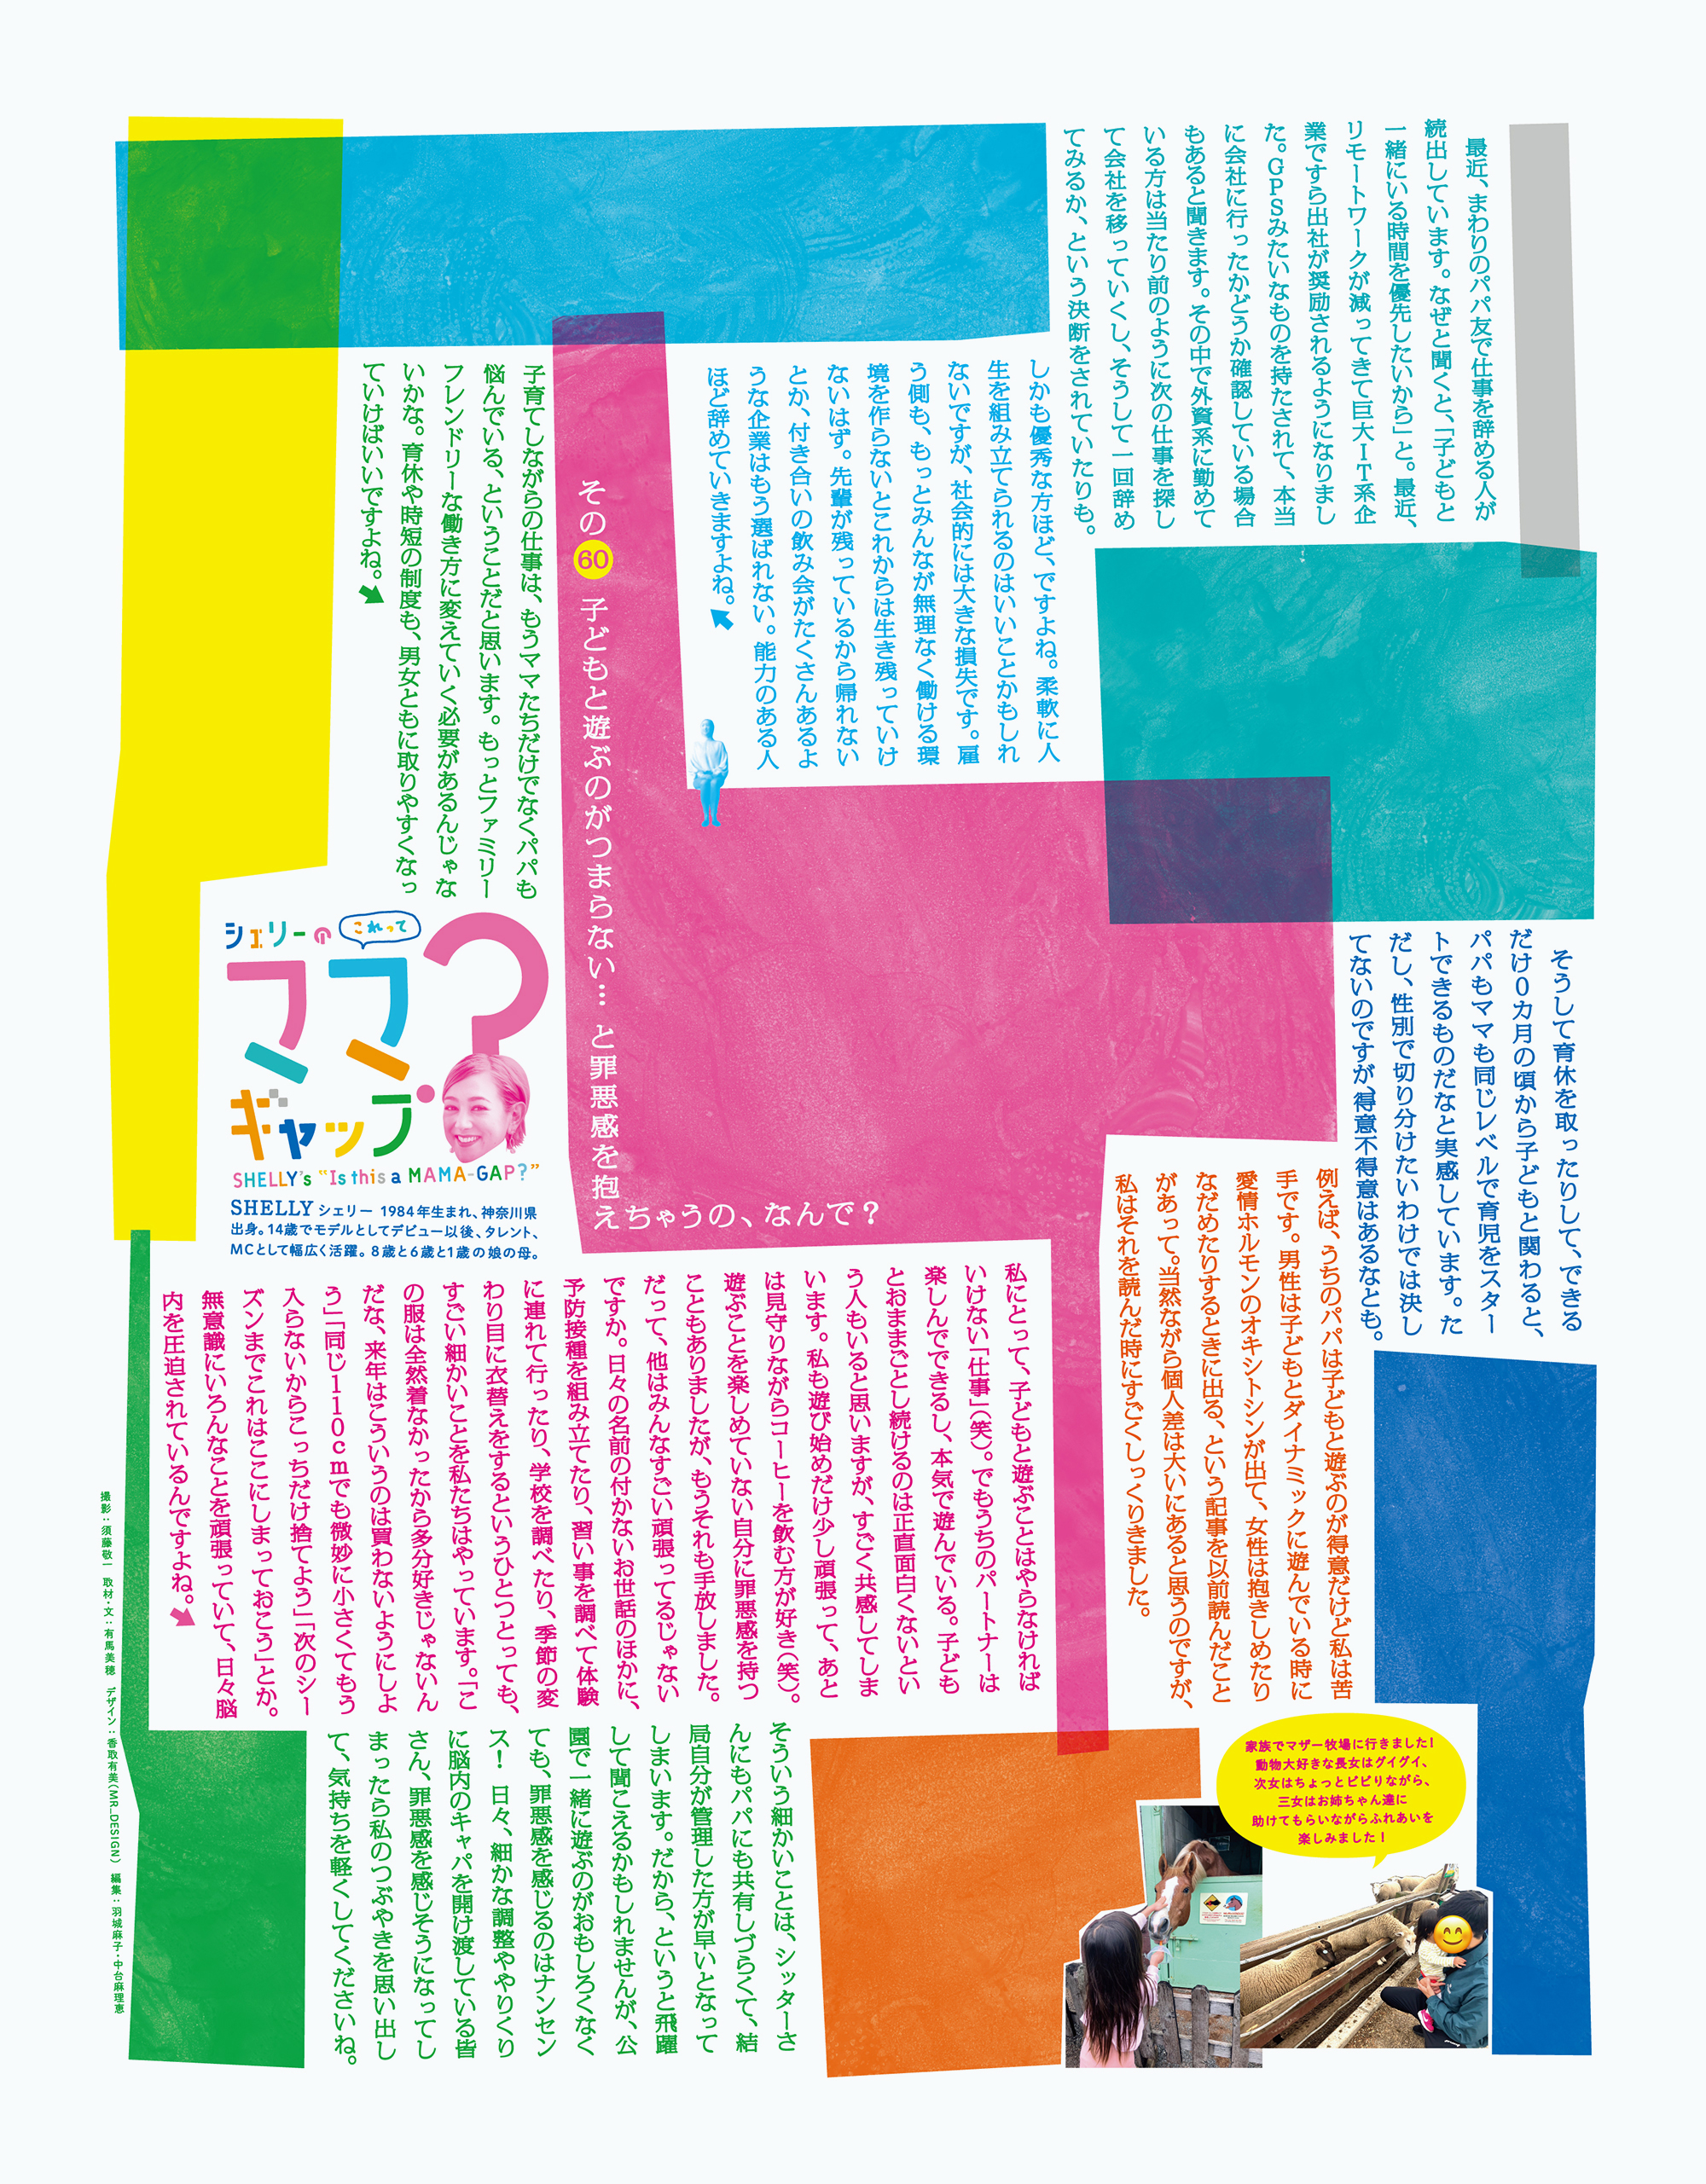 最近、まわりのパパ友で仕事を辞める人が
続出しています。なぜと聞くと、「子どもと
一緒にいる時間を優先したいから」と。最近、
リモートワークが減ってきて巨大IT系企
業ですら出社が奨励されるようになりまし
た。GPSみたいなものを持たされて、本当
に会社に行ったかどうか確認している場合
もあると聞きます。その中で外資系に勤めて
いる方は当たり前のように次の仕事を探し
て会社を移っていくし、そうして一回辞め
てみるか、という決断をされていたりも。
しかも優秀な方ほど、ですよね。柔軟に人
生を組み立てられるのはいいことかもしれ
ないですが、社会的には大きな損失です。雇
う側も、もっとみんなが無理なく働ける環
境を作らないとこれからは生き残っていけ
ないはず。先輩が残っているから帰れない
とか、付き合いの飲み会がたくさんあるよ
うな企業はもう選ばれない。能力のある人
ほど辞めていきますよね。
その60 子どもと遊ぶのがつまらない… と罪悪感を抱
えちゃうの、なんで？
子育てしながらの仕事は、もうママたちだけでなくパパも
悩んでいる、ということだと思います。もっとファミリー
フレンドリーな働き方に変えていく必要があるんじゃな
いかな。育休や時短の制度も、男女ともに取りやすくなっ
ていけばいいですよね。
シェリーの これって
ママ
ギャップ？
SHELLY's "Is this a MAMA-GAP?"
SHELLY シェリー 1984年生まれ、神奈川県
出身。14歳でモデルとしてデビュー以後、タレント、
MCとして幅広く活躍。8歳と6歳と1歳の娘の母。
そうして育休を取ったりして、できる
だけ0カ月の頃から子どもと関わると、
パパもママも同じレベルで育児をスター
トできるものだなと実感しています。た
だし、性別で切り分けたいわけでは決し
てないのですが、得意不得意はあるなとも。
例えば、うちのパパは子どもと遊ぶのが得意だけど私は苦
手です。男性は子どもとダイナミックに遊んでいる時に
愛情ホルモンのオキシトシンが出て、女性は抱きしめたり
なだめたりするときに出る、という記事を以前読んだこと
があって。当然ながら個人差は大いにあると思うのですが、
私はそれを読んだ時にすごくしっくりきました。
私にとって、子どもと遊ぶことはやらなければ
いけない「仕事」（笑）。でもうちのパートナーは
楽しんでできるし、本気で遊んでいる。子ども
とおままごとし続けるのは正直面白くないとい
う人もいると思いますが、すごく共感してしま
います。私も遊び始めだけ少し頑張って、あと
は見守りながらコーヒーを飲む方が好き（笑）。
遊ぶことを楽しめていない自分に罪悪感を持つ
こともありましたが、もうそれも手放しました。
だって、他はみんなすごい頑張ってるじゃない
ですか。日々の名前の付かないお世話のほかに、
予防接種を組み立てたり、習い事を調べて体験
に連れて行ったり、学校を調べたり、季節の変
わり目に衣替えをするというひとつとっても、
すごい細かいことを私たちはやっています。「こ
の服は全然着なかったから多分好きじゃないん
だな、来年はこういうのは買わないようにしよ
う」「同じ110cmでも微妙に小さくてもう
入らないからこっちだけ捨てよう」「次のシー
ズンまでこれはここにしまっておこう」とか。
無意識にいろんなことを頑張っていて、日々脳
内を圧迫されているんですよね。
そういう細かいことは、シッターさ
んにもパパにも共有しづらくて、結
局自分が管理した方が早いとなって
しまいます。だから、というと飛躍
して聞こえるかもしれませんが、公
園で一緒に遊ぶのがおもしろくなく
ても、罪悪感を感じるのはナンセン
ス！ 日々、細かな調整ややりくり
に脳内のキャパを開け渡している皆
さん、罪悪感を感じそうになってし
まったら私のつぶやきを思い出し
て、気持ちを軽くしてくださいね。
家族でマザー牧場に行きました！
動物大好きな長女はグイグイ、
次女はちょっとビビりながら、
三女はお姉ちゃん達に
助けてもらいながらふれあいを
楽しみました！
撮影：須藤敬一 取材・文：有馬美穂 デザイン：香取有美（MR_DESIGN） 編集：羽城麻子・中台麻理恵